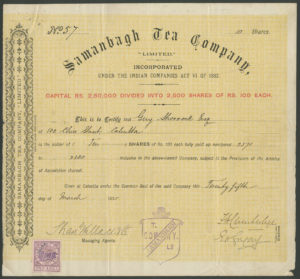 No. 57
Shares
Samanbagh Tea Company,
"LIMITED."
INCORPORATED
UNDER THE INDIAN COMPANIES ACT VI OF 1882.
CAPITAL RS. 2,60,000 DIVIDED INTO 2,600 SHARES OF RS. 100 EACH.
This is to Certify that
Esq
of 100, Clive Street, Calcutta
is the holder of Ten SHARES OF RS. 100 each fully paid up numbered
inclusive in the above-named Company, subject to the Provisions of the Articles
of Association thereof.
Given at Calcutta under the Common Seal of the said Company this Twenty fifth
day of March
Shaw Wallace & Co
Managing Agents.
T.
COMPANY
LD